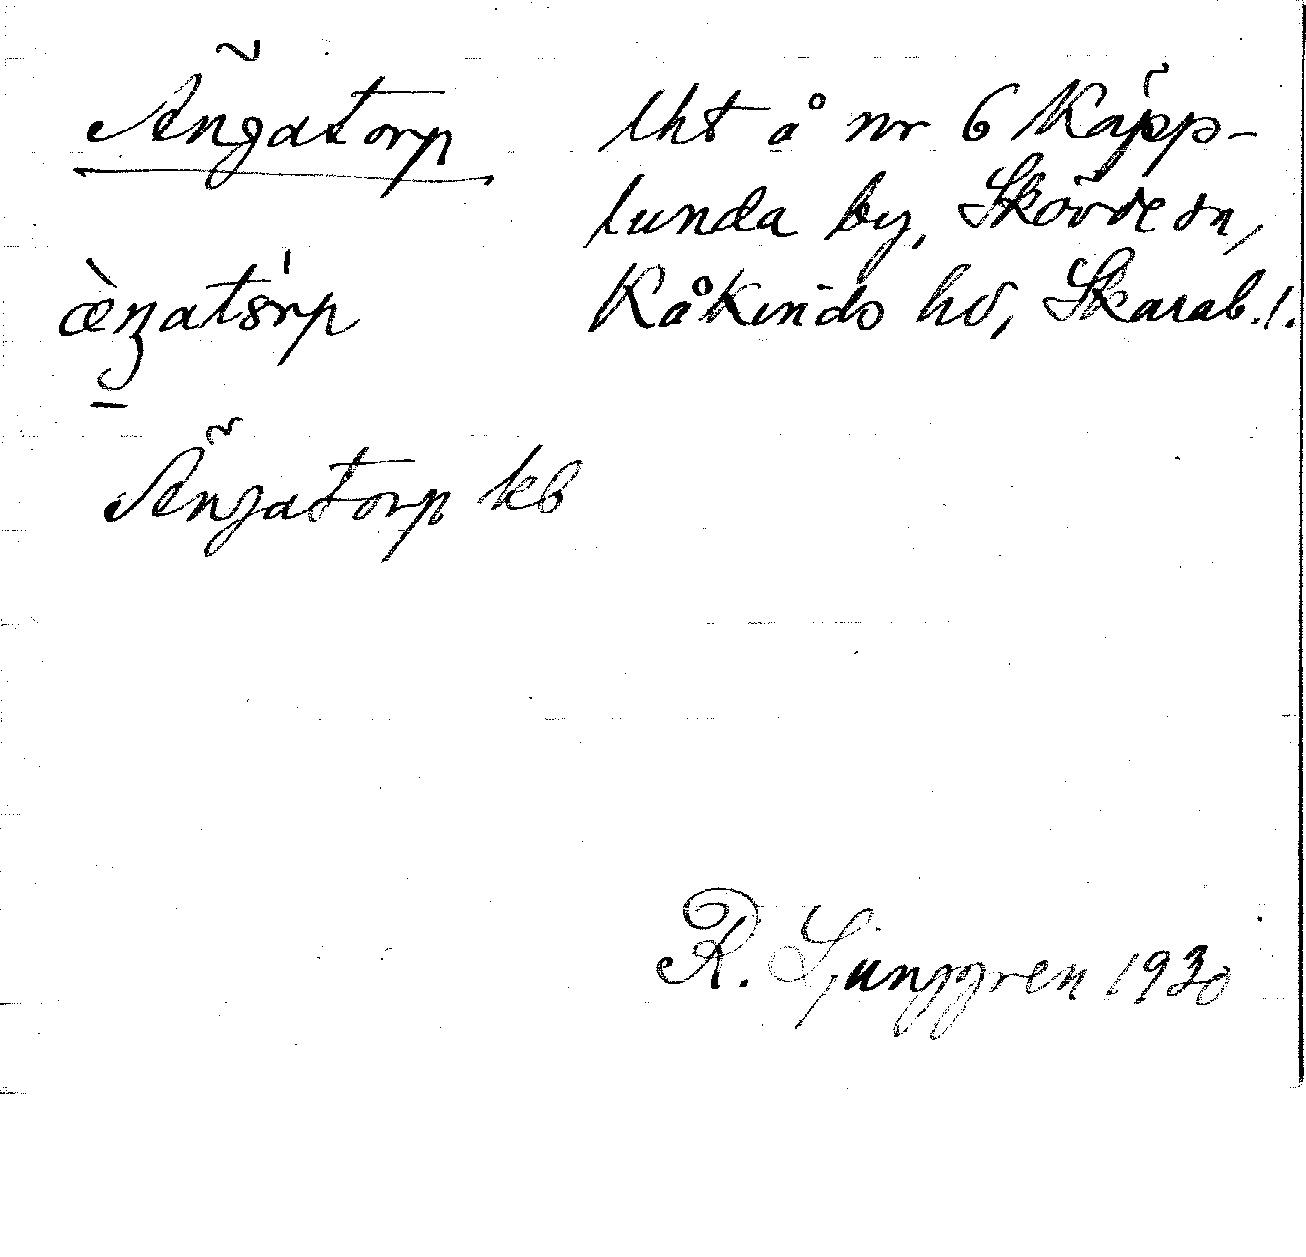 Ängatorp
lht å nr 6 Käpp-
lunda by, Skövde sn,
Kåkinds hd, Skarab. l.
Ängatorp kb
R. Ljunggren 1930